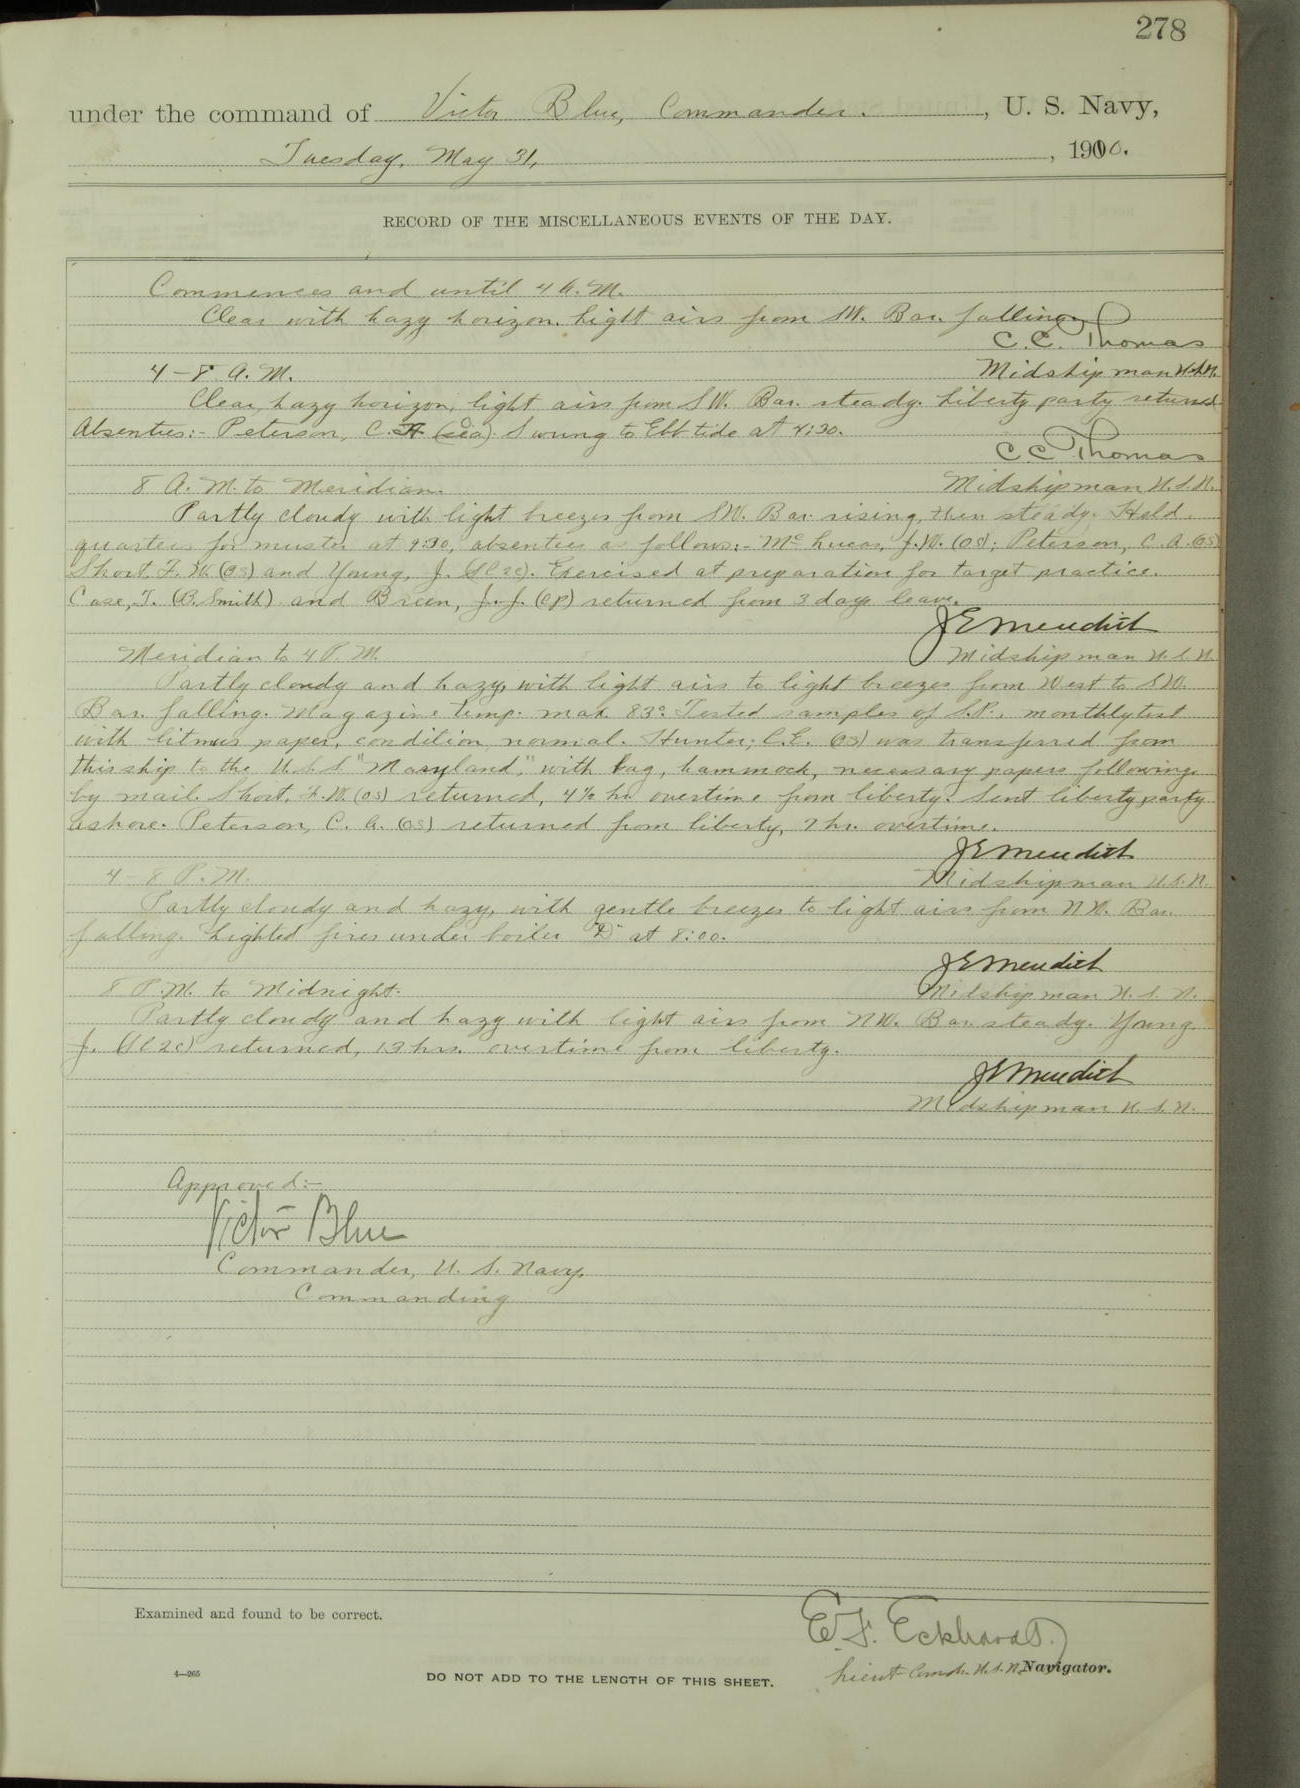 278
under the command of Victor Blue, Commander. , U. S. Navy,
Tuesday, May 31, , 1910.
RECORD OF THE MISCELLANEOUS EVENTS OF THE DAY.
Commences and until 4 A.M.
Clear with hazy horizon. Light airs from SW. Bar. falling.
C. C. Thomas
4 – 8 A.M. Midshipman U.S.N.
Clear, hazy horizon, light airs from SW. Bar. steady. Liberty party returned.
Absentees:- Peterson, C. A. (Sea). Swung to Ebb tide at 4:30.
C C Thomas
8 A.M. to Meridian. Midshipman U.S.N.
Partly cloudy with light breezes from SW. Bar. rising, then steady. Held
quarters for muster at 9:30, absentees as follows:- McLucas, J.W. (OS); Peterson, C. A. (OS)
Short, F. W. (OS) and Young, J. (SC2C). Exercised at preparation for target practice.
Case, T. (B. Smith) and Breen, J. J. (CP) returned from 3 days leave.
J E Meredith
Meridian to 4 P.M. Midshipman U.S.N.
Partly cloudy and hazy, with light airs to light breezes from West to SW.
Bar. falling. Magazine temp. max. 83°. Tested samples of S.P., monthly test
with litmus paper, condition normal. Hunter, C.E. (OS) was transferred from
this ship to the U.S.S "Maryland," with bag, hammock, necessary papers following
by mail. Short, F.W. (OS) returned, 4½ hr. overtime from liberty. Sent liberty party
ashore. Peterson, C. A. (OS) returned from liberty, 7 hr. overtime.
J E Meredith
4 – 8 P.M. Midshipman U.S.N.
Partly cloudy and hazy, with gentle breezes to light airs from NW. Bar.
falling. Lighted fires under boiler "D" at 8:00.
J E Meredith
8 P.M. to Midnight. Midshipman U.S.N.
Partly cloudy and hazy with light airs from NW. Bar. steady. Young
J. (SC2C) returned, 13 hrs. overtime from liberty.
J E Meredith
Midshipman U.S.N.
Approved:-
Victor Blue
Commander, U. S. Navy,
Commanding
Examined and found to be correct.
E. F. Eckhardt
Lieut Comdr. U.S.N. Navigator.
4—265
DO NOT ADD TO THE LENGTH OF THIS SHEET.